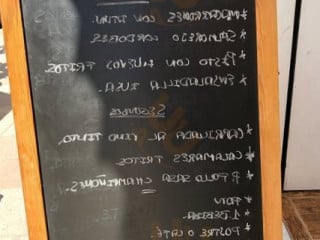 * MACARRONES CON ATUN.
* SALMOREJO CORDOBES
* PISTO CON HUEVOS FRITOS
* ENSALADILLA RUSA.
SEGUNDOS
* CARRILLADA AL VINO TINTO.
* CALAMARES FRITOS
* POLLO CHAMPIÑONES
* PAN
* 1 BEBIDA.
* POSTRE O CAFÉ